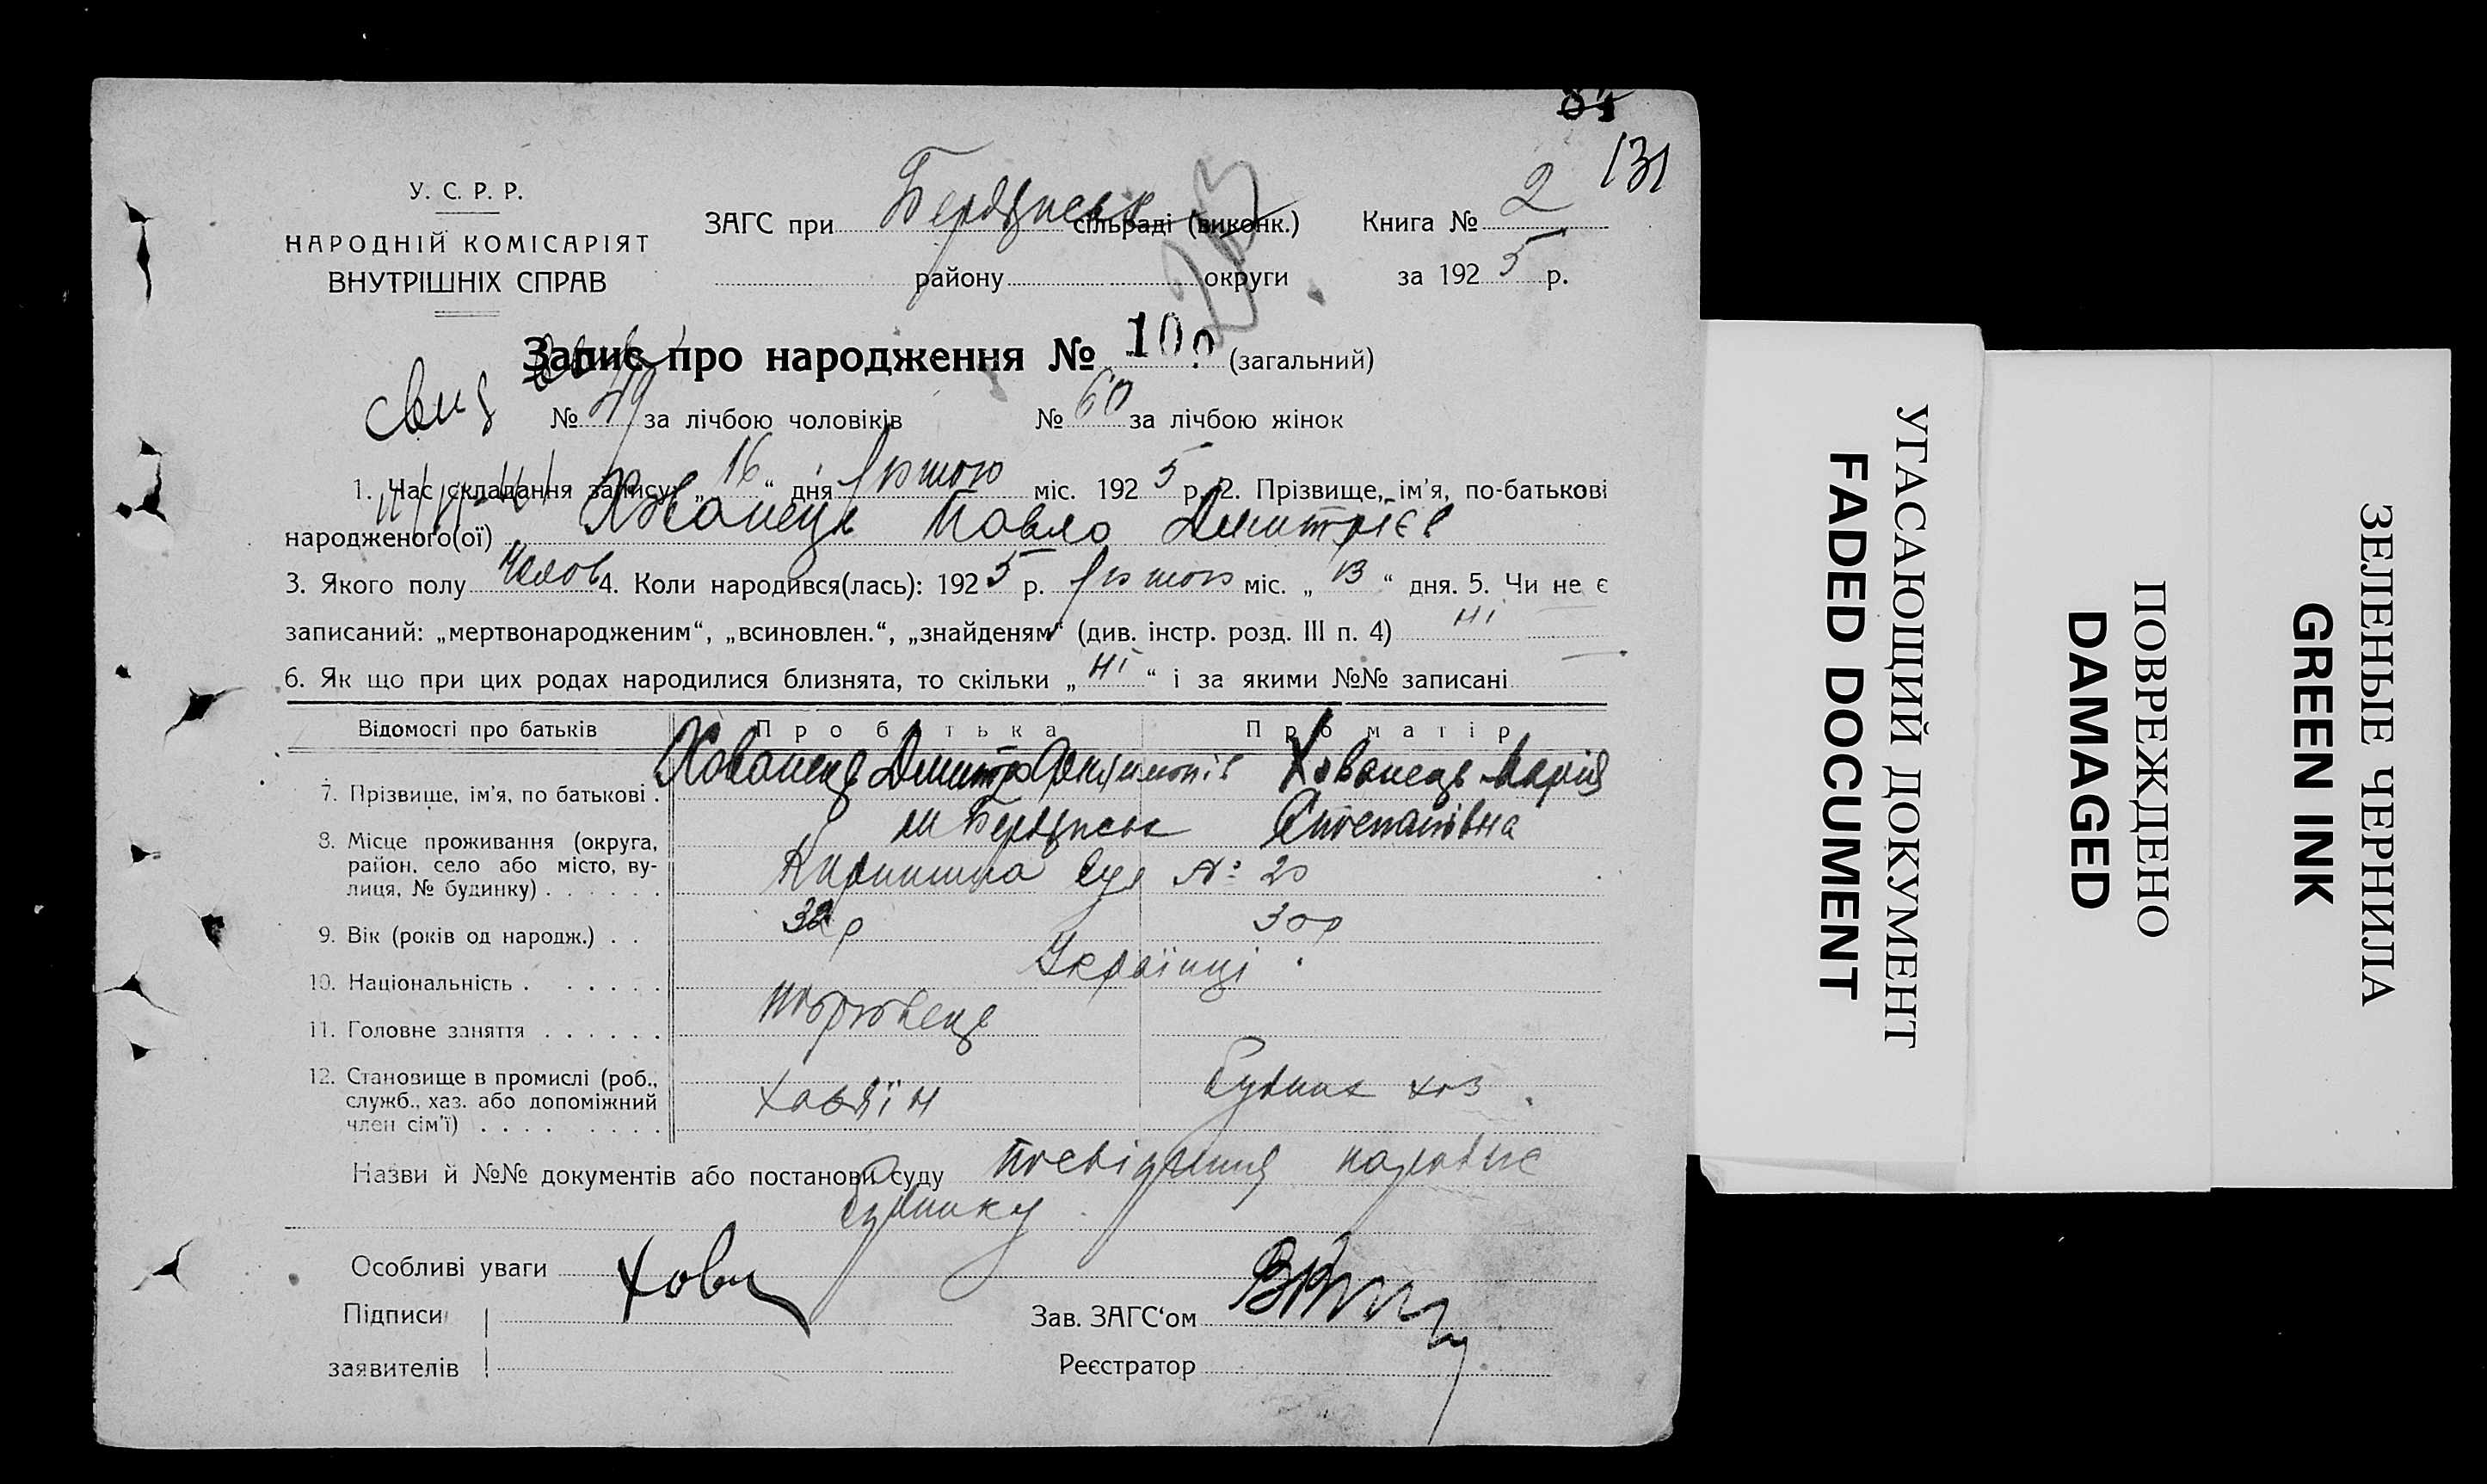 131
У. С. Р. Р.
НАРОДНІЙ КОМІСАРІЯТ
ВНУТРІШНІХ СПРАВ
ЗАГС при Бердянськ сільраді (виконк.) Книга № 2
району округи за 1925 р.
Запис про народження № (загальний)
№ за лічбою чоловіків № 60 за лічбою жінок
1. Час складання запису „16“ дня міс. 1925 р. 2. Прізвище, ім'я, по-батькові
народженого(ої) Хованець Павло Дмитрієв
3. Якого полу Чолов 4. Коли народився(лась): 1925 р. міс. „13“ дня. 5. Чи не є
записаний: „мертвонародженим“, „всиновлен.“, „знайденям“ (див. інстр. розд. III п. 4) Ні
6. Як що при цих родах народилися близнята, то скільки „Ні“ і за якими №№ записані
Відомості про батьків Про батька Про матір
7. Прізвище, ім'я, по батькові . Хованець Дмитро Хованець Марія
м Бердянськ Степанівна
8. Місце проживання (округа,
район, село або місто, ву-
лиця, № будинку) . . . . . . № 20
9. Вік (років од народж.) . . 32 р 30 р
10. Національність . . . . . . Українці
11. Головне заняття . . . . . . торговець
12. Становище в промислі (роб.,
служб., хаз. або допоміжний
член сім'ї) . . . . . . . . хазяїн
Назви й №№ документів або постанови суду посвідчення
будинку
Особливі уваги
Підписи
заявителів
Зав. ЗАГС'ом
Реєстратор
УГАСАЮЩИЙ ДОКУМЕНТ
FADED DOCUMENT
ПОВРЕЖДЕНО
DAMAGED
ЗЕЛЕНЫЕ ЧЕРНИЛА
GREEN INK